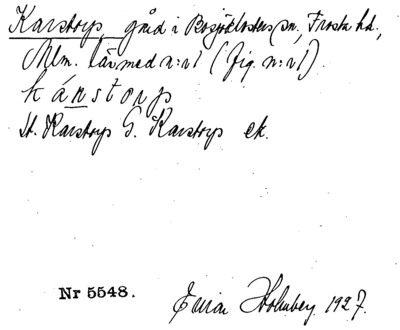 Karstorp, gård i Bosjöklosters sn, Frosta hd,
Mlm. län med n:r 1 (fig. n:r 1).
kánstorp
St. Karstorps G. Karstorps ek.
Nr 5548.
Holmberg 1927.